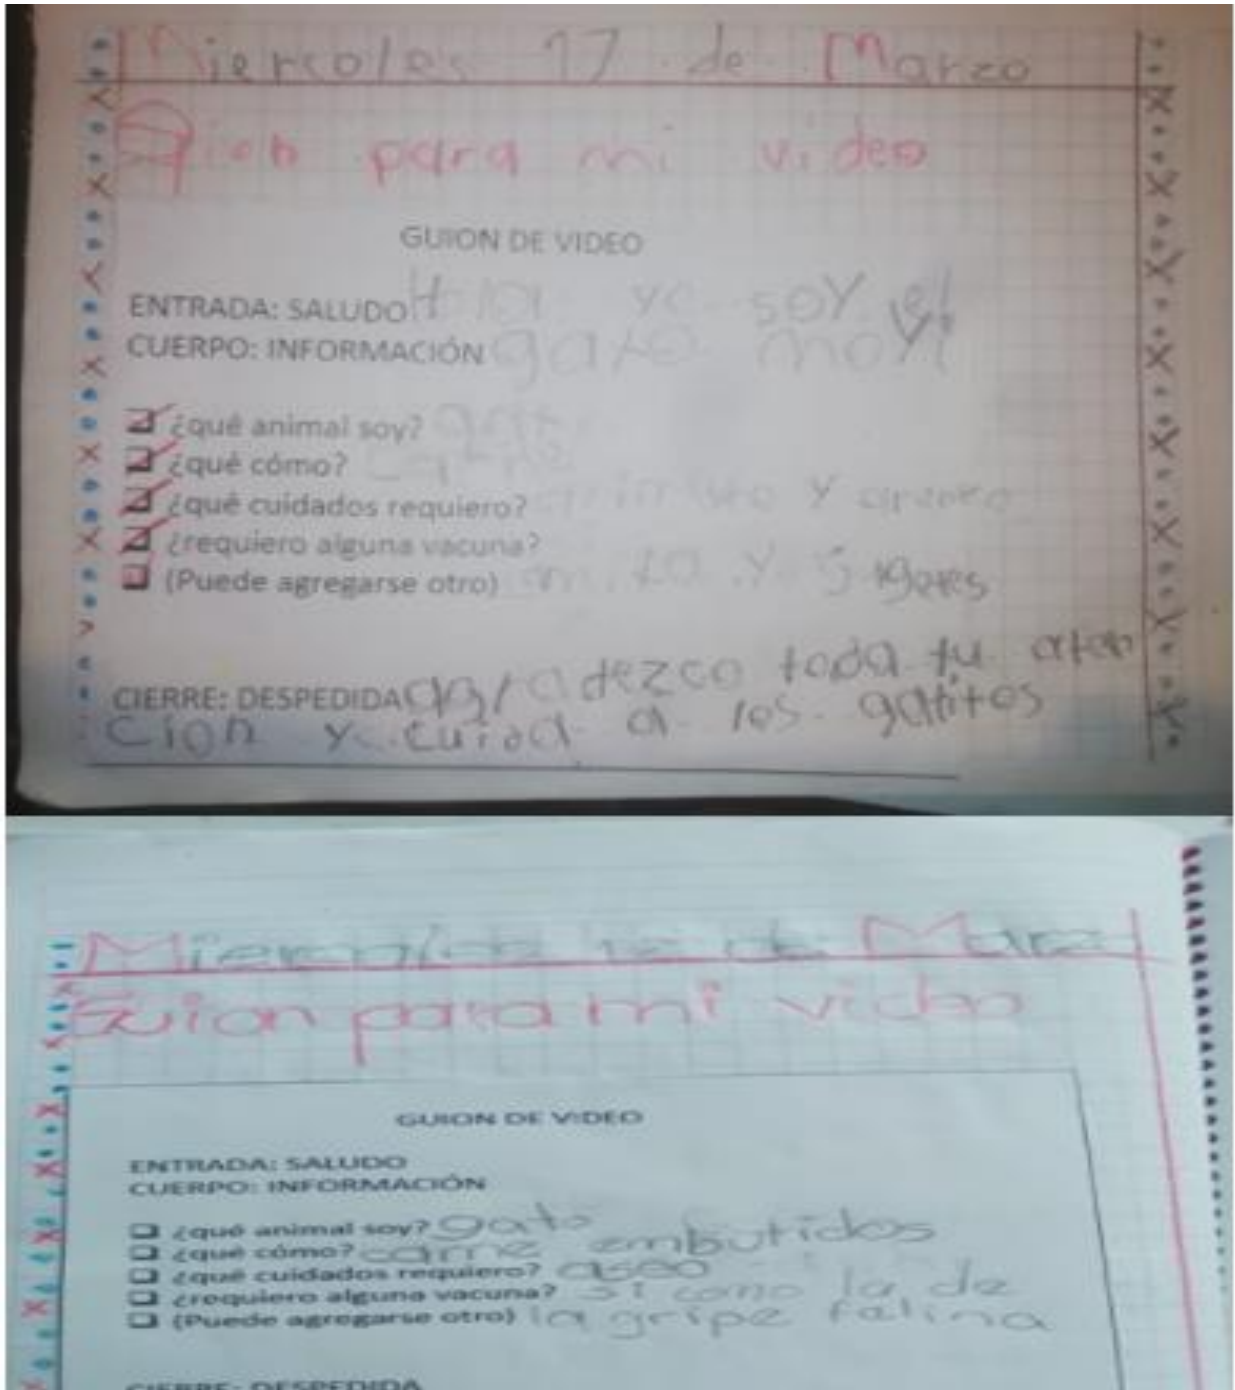 Miercoles 17 de Marzo
Gion para mi video
GUION DE VIDEO
ENTRADA: SALUDO Hola yo soy el
CUERPO: INFORMACIÓN gato moyi
¿qué animal soy? gato
¿qué cómo? carne
¿qué cuidados requiero? y arenero
¿requiero alguna vacuna?
(Puede agregarse otro) y
CIERRE: DESPEDIDA agradezco toda tu aten
cion y cuida a los gatitos
Miercoles de Marzo
Guion para mi video
GUION DE VIDEO
ENTRADA: SALUDO
CUERPO: INFORMACIÓN
¿qué animal soy? gato
¿qué cómo? carne embutidos
¿qué cuidados requiero? aseo
¿requiero alguna vacuna? si como la de
(Puede agregarse otro) la gripe felina
CIERRE: DESPEDIDA